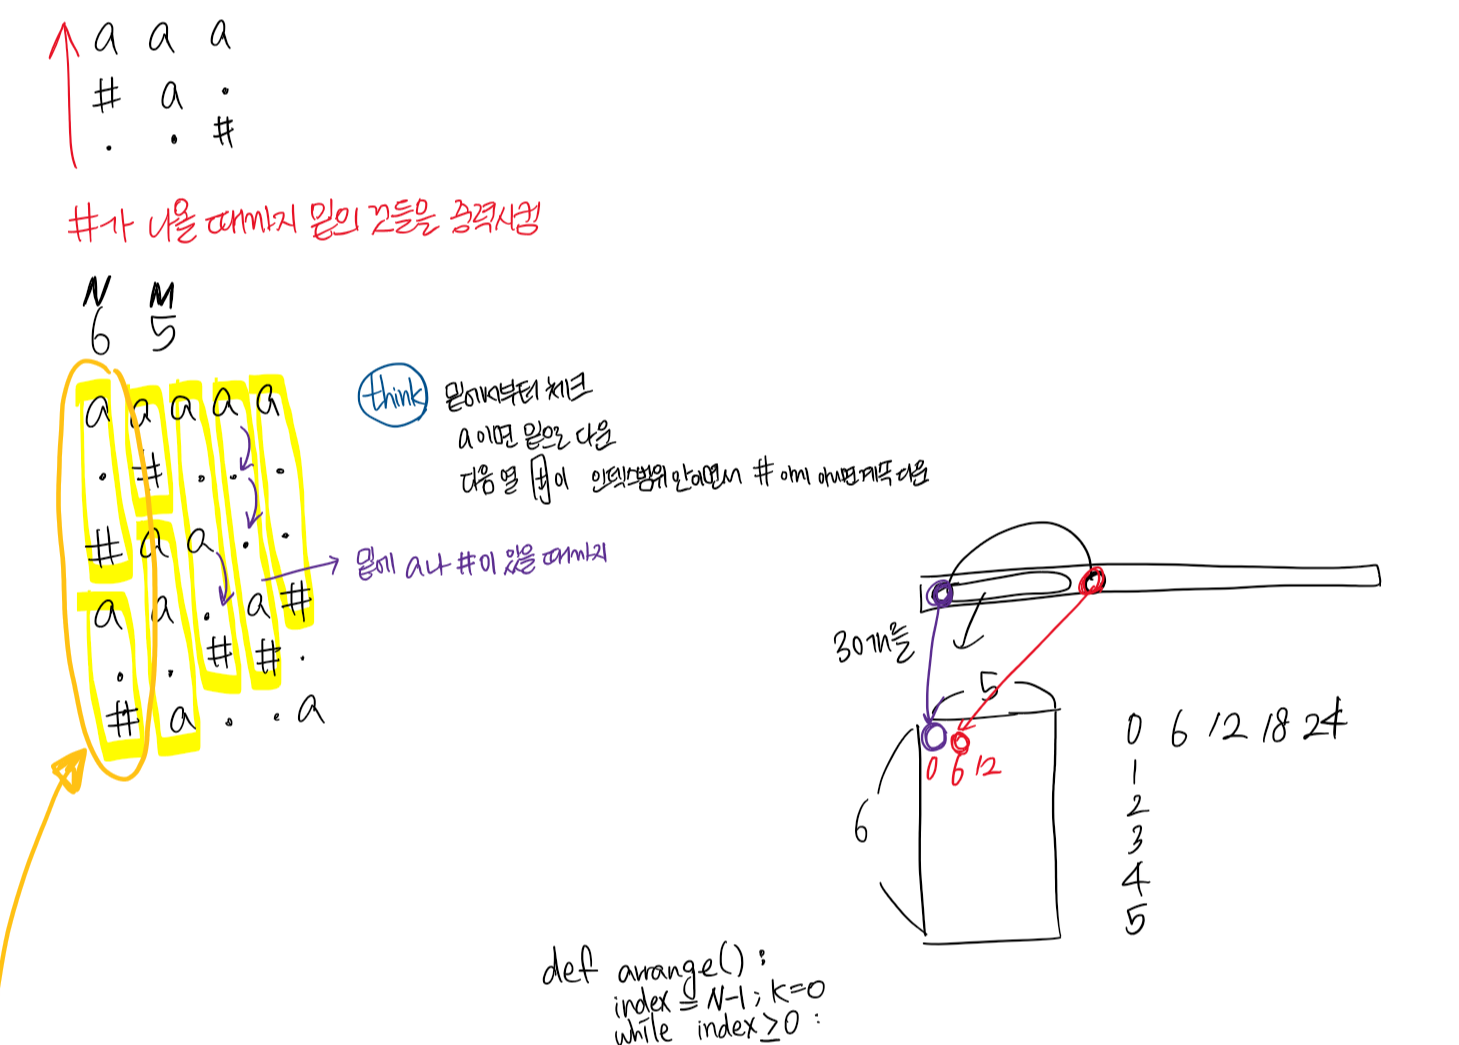 a a a
# a .
. . #
#가 나올 때까지 밑의 것들을 중력시킴
N M
6 5
a a a a a
. # . . .
# a a . .
a a . a #
. . # # .
# a . . a
think
밑에서부터 체크
a이면 밑으로 다운
다음 열 #이 인덱스범위 안이면서 # 아께 아니면 계속 다운
밑에 a나 #이 있을 때까지
30개를
5
6
0 6 12
0 6 12 18 24
1
2
3
4
5
def arrange():
index = N-1; k=0
while index≥0 :